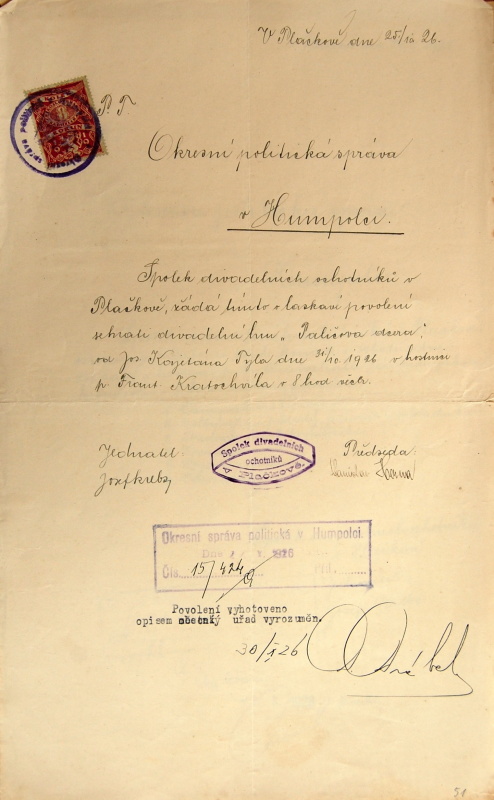 V Plačkově dne 25/10 26.
P. T.
Okresní politická správa
v Humpolci.
Spolek divadelních ochotníků v
Plačkově, žádá tímto o laskavé povolení
sehrati divadelní hru „Paličova dcera",
od Jos. Kajetána Tyla dne 31/10. 1926 v hostinci
p. Frant. Kratochvíla o 8 hod več.
Jednatel:
Předseda:
Spolek divadelních
ochotníků
v Plačkově.
Okresní správa politická v Humpolci.
Dne 1926
Čís. 15/424 příl.
Povolení vyhotoveno
opisem obecný uřad vyrozuměn.
30/X 26
51